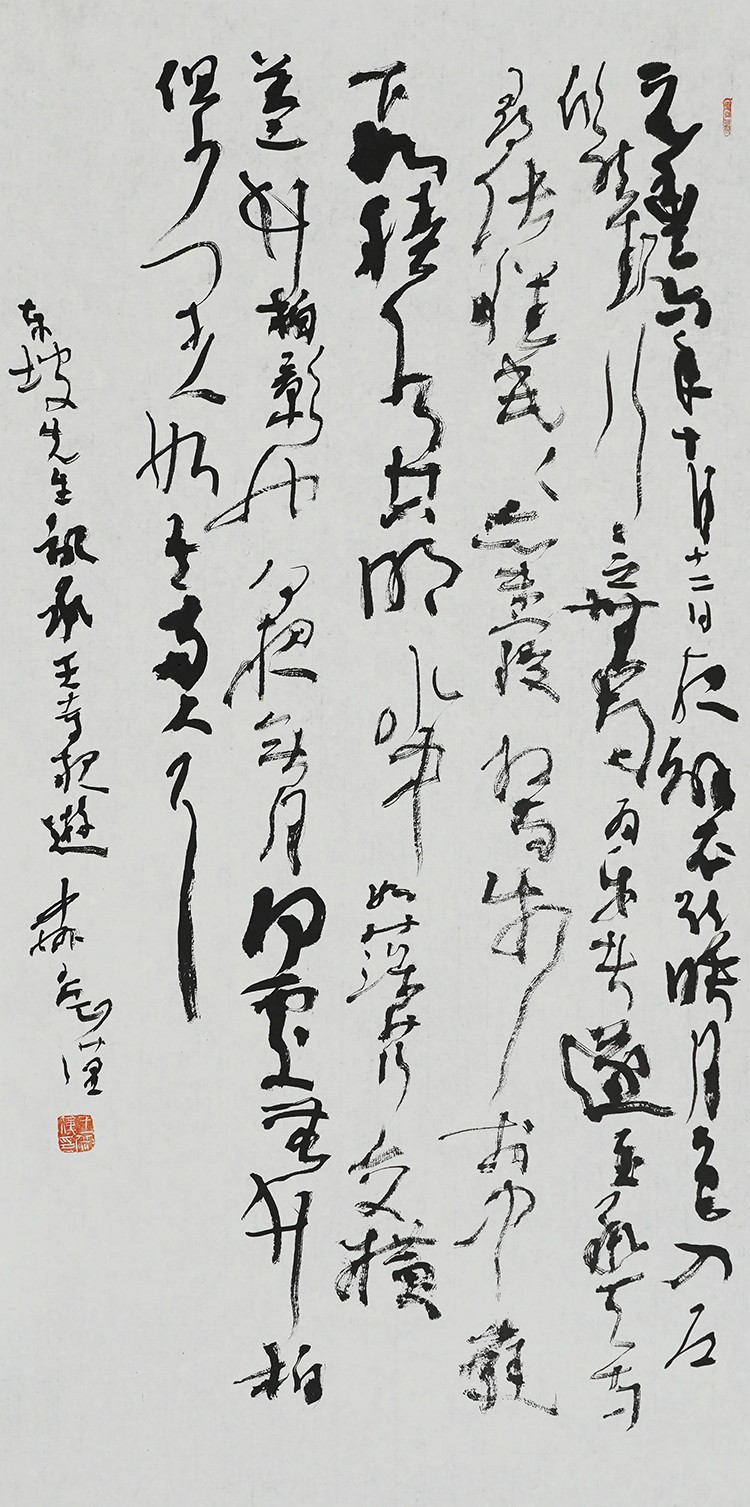 元豐六年十月十二日夜解衣欲睡月色入户
欣然起行念無與為樂者遂至承天寺
尋張懷民〻亦未寢相與步於中庭
下如積水空明水中藻荇交橫
蓋竹柏影也何夜無月何處無竹柏
但少閒人如吾兩人耳
東坡先生記承天寺夜遊